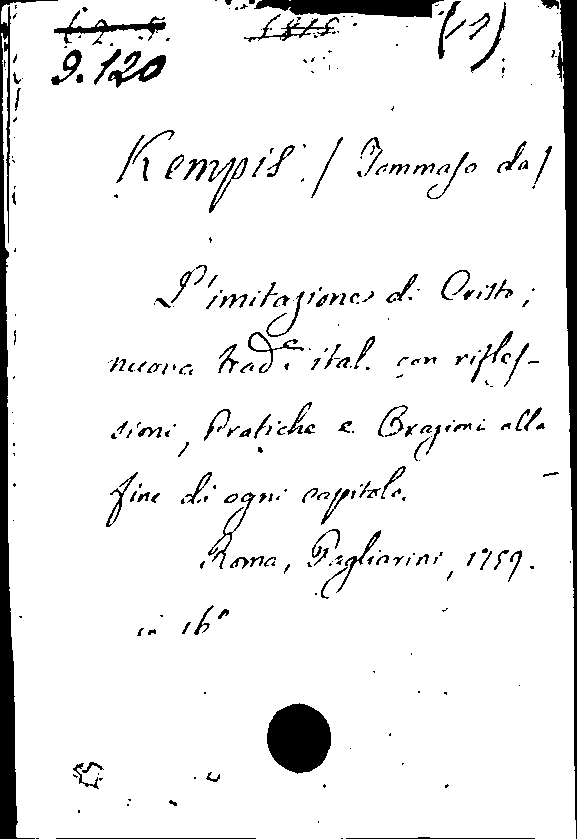 6.2.5. 1815 (17)
9.120
Kempis / Tommaso da /
L'imitazione di Cristo;
nuova trad.e ital. con rifles-
sioni, Pratiche e Orazioni alla
fine di ogni capitolo.
Roma, Pagliarini, 1759.
in 16°